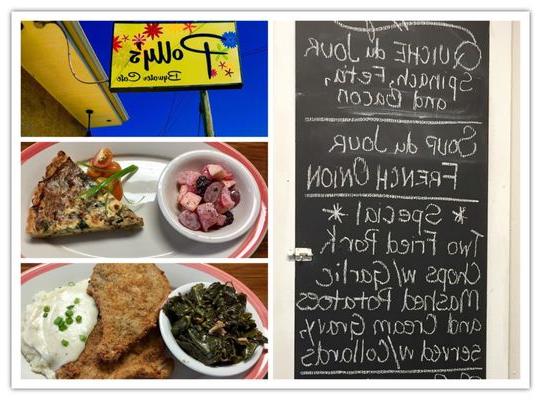 Polly's
Bywater Cafe
QUICHE du JOUR
Spinach, Feta,
and Bacon
SOUP du JOUR
FRENCH ONION
* Special *
Two Fried Pork
Chops w/Garlic
Mashed Potatoes
and Cream Gravy,
served w/Collards